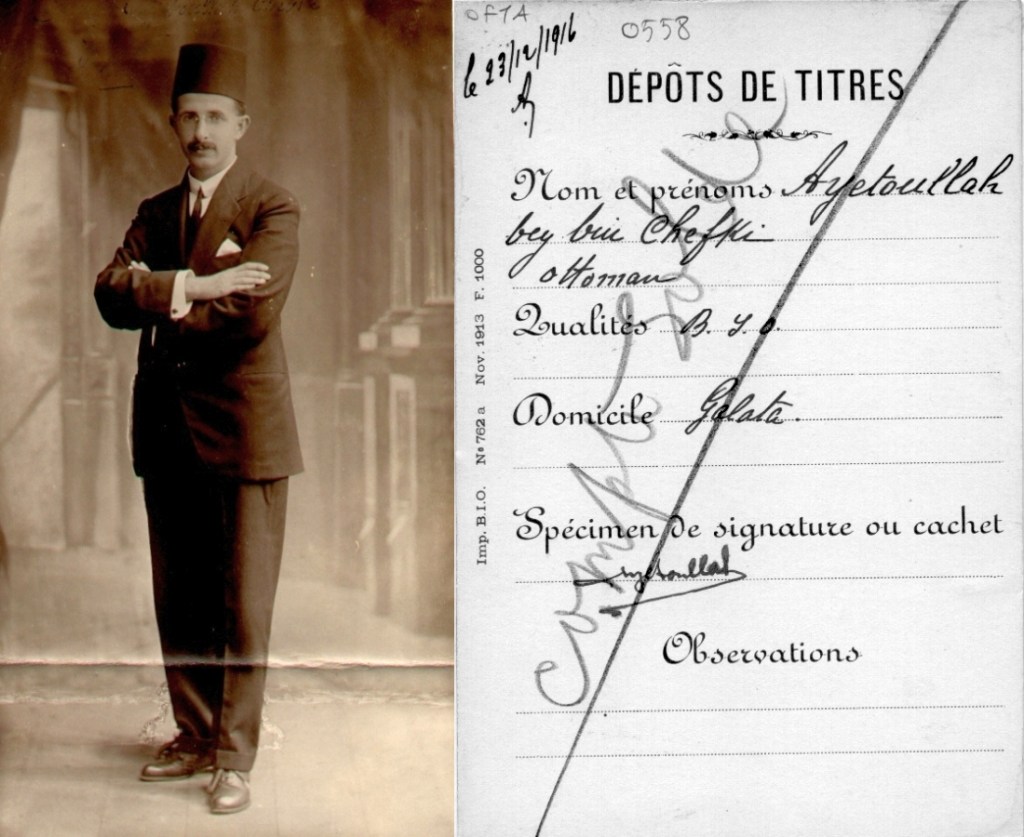 OFTA
0558
le 23/12/1916
DÉPÔTS DE TITRES
Nom et prénoms Ayetoullah
bey bin Chefki
ottoman
Qualités B. I. O.
Domicile Galata.
Spécimen de signature ou cachet
Ayetoullah
Observations
Compte soldé
Imp. B.I.O. No 762 a Nov. 1913 F. 1000